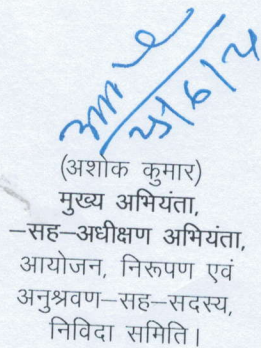 25/6/2
(अशोक कुमार)
मुख्य अभियंता,
–सह–अधीक्षण अभियंता,
आयोजन, निरूपण एवं
अनुश्रवण–सह–सदस्य,
निविदा समिति।